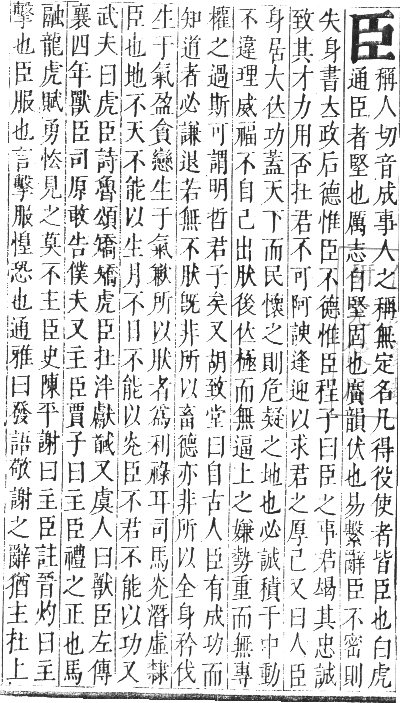 臣 稱人切音成事人之稱無定名凡得役使者皆臣也白虎
通臣者堅也厲志自堅固也廣韻伏也易繫辭臣不密則
失身書大政后德惟臣不德惟臣程子曰臣之事君竭其忠誠
致其才力用否在君不可阿諛逢迎以求君之厚己又曰人臣
身居大位功蓋天下而民懷之則危疑之地也必誠積于中動
不違理威福不自己出肰後位極而無逼上之嫌勢重而無專
權之過斯可謂明哲君子矣又胡致堂曰自古人臣有成功而
知道者必謙退若無不肰既非所以畜德亦非所以全身矜伐
生于氣盈貪戀生于氣歉所以肰者爲利祿耳司馬光潛虛隸
臣也地不天不能以生月不日不能以炗臣不君不能以功又
武夫曰虎臣詩魯頌矯矯虎臣在泮獻馘又虞人曰獸臣左傳
襄四年獸臣司原敢告僕夫又主臣賈子曰主臣禮之正也馬
融龍虎賦勇怯見之莫不主臣史陳平謝曰主臣註晉灼曰主
擊也臣服也言擊服惶恐也通雅曰發語敬謝之辭猶主在上